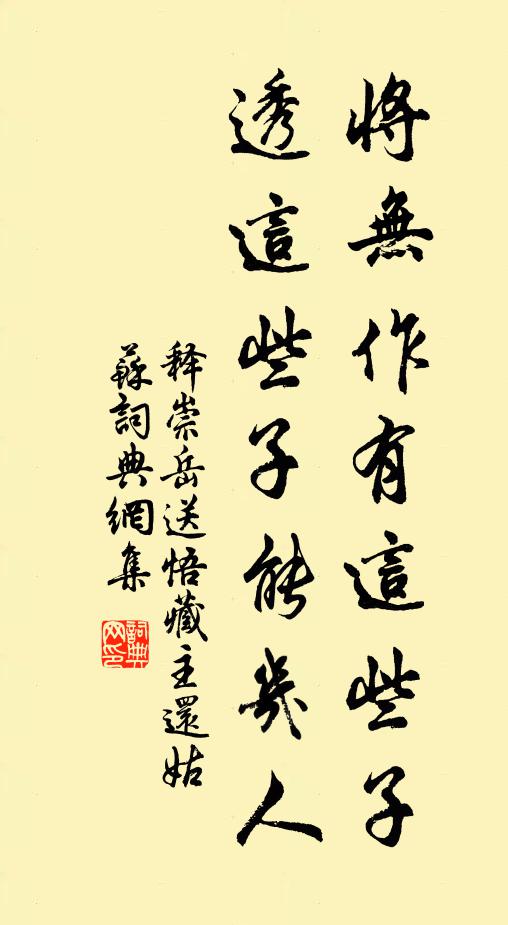 將無作有這些子
透這些子能幾人
释崇岳送悟藏主還姑
蘇詞典網集
詞典网印